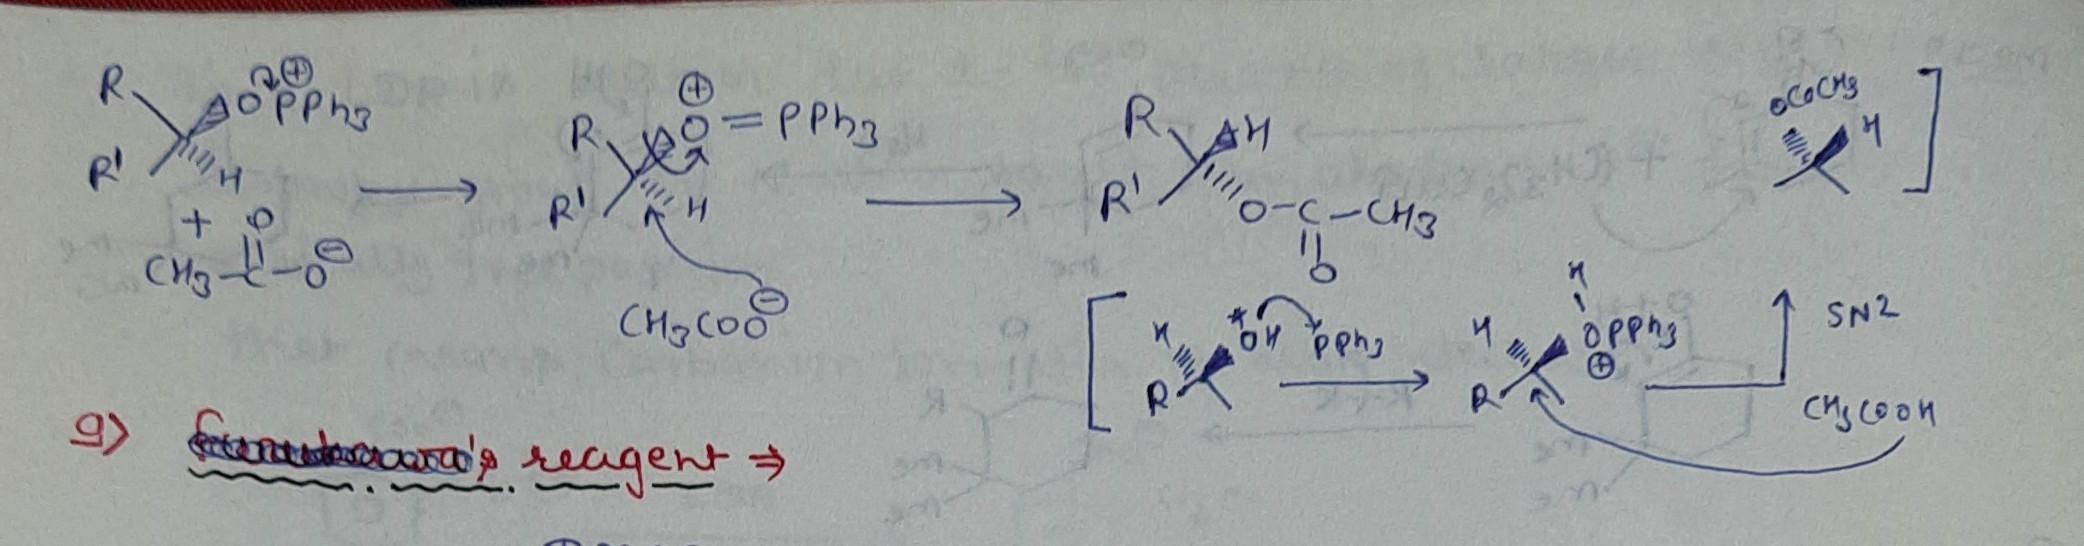 R OPPh3 ⊕
R' H
+
CH3-C-O⊖
O
R O=PPh3 ⊕
R' H
CH3COO⊖
R H
R' O-C-CH3
O
OCOCH3
H ]
[ H *OH PPh3
R
H
H OPPh3
⊕
R
SN2
CH3COOH
9) reagent ⇒